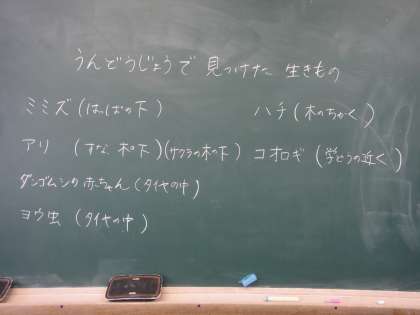 うんどうじょうで 見つけた 生きもの
ミミズ(はっぱの下)
ハチ(木のちかく)
アリ (すな 木の下)(サクラの木の下)
コオロギ (学どうの近く)
ダンゴムシの赤ちゃん(タイヤの中)
ヨウ虫 (タイヤの中)